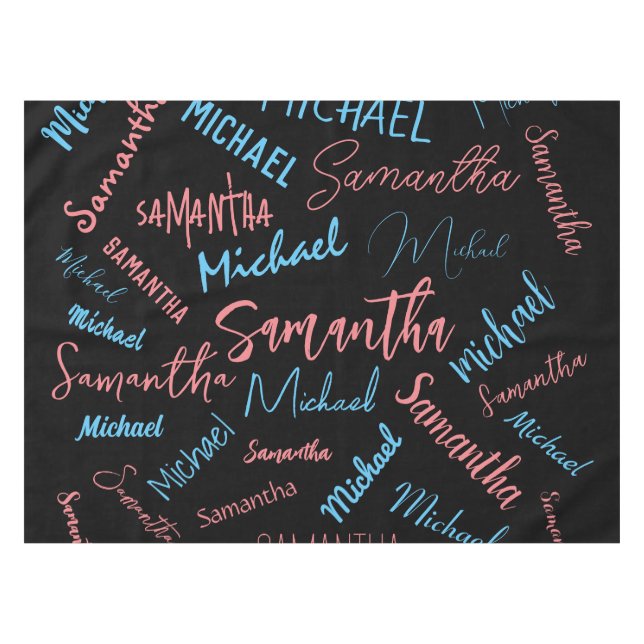 Michael
Samantha
MICHAEL
MICHAEL
Michael
Samantha
Samantha
SAMANTHA
Michael
Michael
SAMANTHA
Michael
Michael
Samantha
Michael
Samantha
Michael
Samantha
Samantha
Michael
Michael
Michael
Samantha
Samantha
Michael
Michael
Samantha
Samantha
Samantha
Michael
Samantha
SAMANTHA